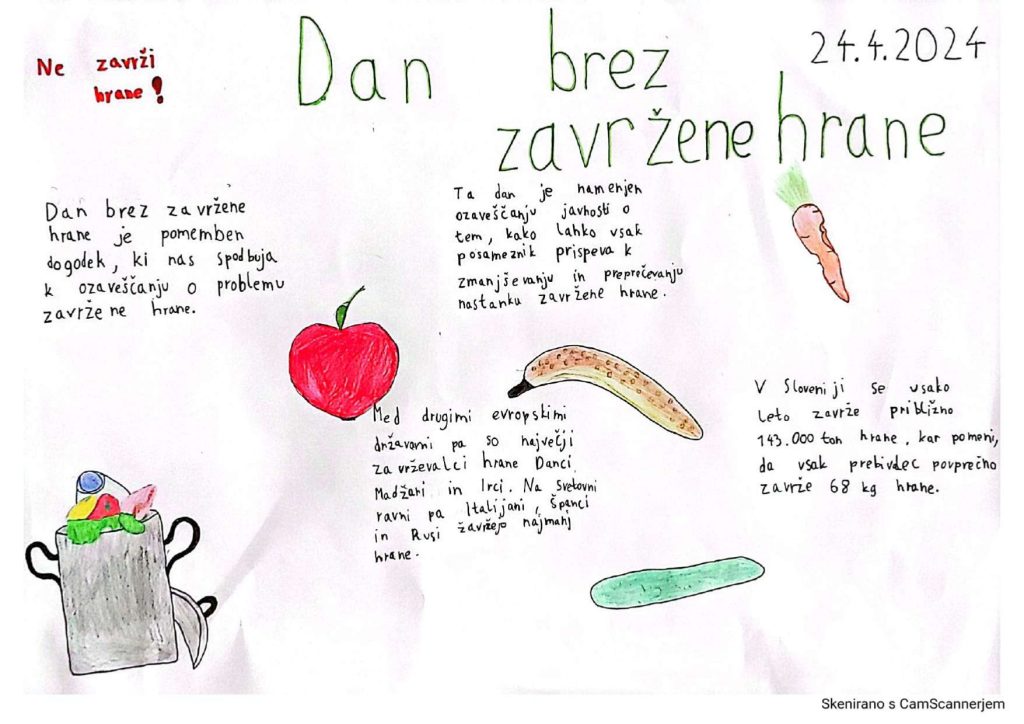 Ne zavrži
hrane!
Dan brez
zavržene hrane
24.4.2024
Dan brez zavržene
hrane je pomemben
dogodek, ki nas spodbuja
k ozaveščanju o problemu
zavržene hrane.
Ta dan je namenjen
ozaveščanju javnosti o
tem, kako lahko vsak
posameznik prispeva k
zmanjševanju in preprečevanju
nastanku zavržene hrane.
Med drugimi evropskimi
državami pa so največji
zavrževalci hrane Danci,
Madžari in Irci. Na svetovni
ravni pa Italijani, Španci
in Rusi zavržejo najmanj
hrane.
V Sloveniji se vsako
leto zavrže približno
143.000 ton hrane, kar pomeni,
da vsak prebivalec povprečno
zavrže 68 kg hrane.
Skenirano s CamScannerjem